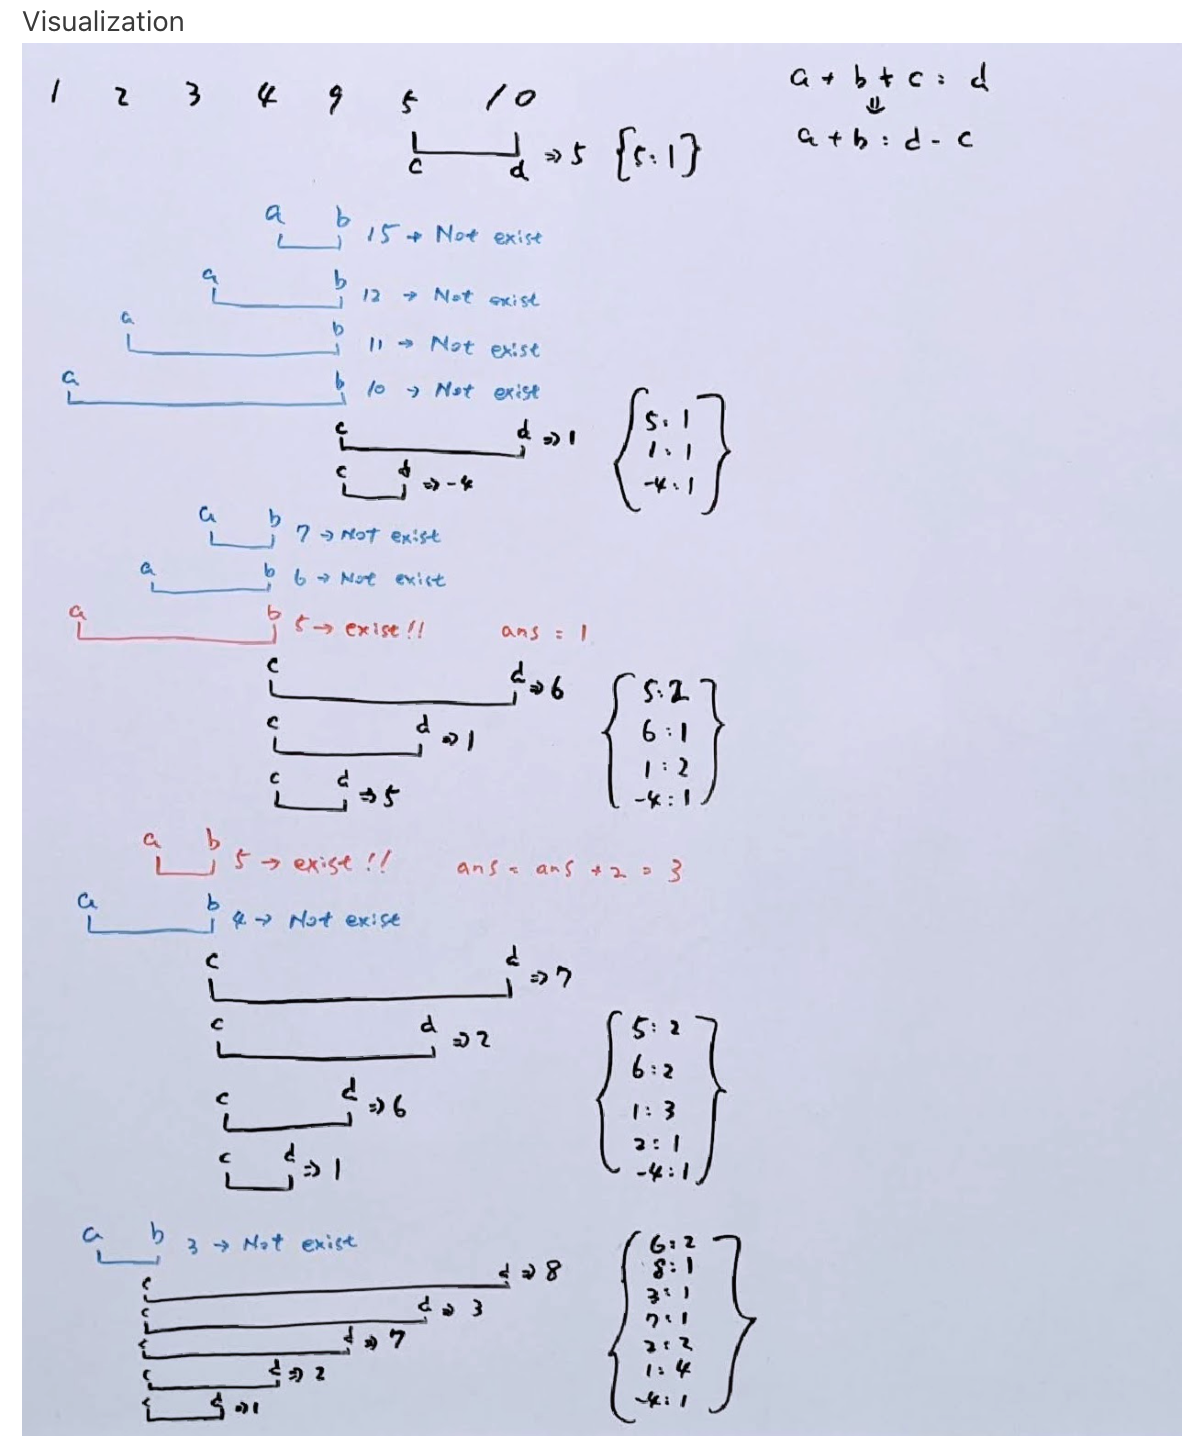 Visualization
1 2 3 4 9 5 10
a + b + c = d
⇓
a + b = d - c
c d ⇒ 5 {5:1}
a b 15 → Not exist
a b 12 → Not exist
a b 11 → Not exist
a b 10 → Not exist
c d ⇒ 1
c d ⇒ -4
5:1
1:1
-4:1
a b 7 → Not exist
a b 6 → Not exist
a b 5 → exist!! ans = 1
c d ⇒ 6
c d ⇒ 1
c d ⇒ 5
5:2
6:1
1:2
-4:1
a b 5 → exist!! ans = ans + 2 = 3
a b 4 → Not exist
c d ⇒ 7
c d ⇒ 2
c d ⇒ 6
c d ⇒ 1
5:2
6:2
1:3
2:1
-4:1
a b 3 → Not exist
c d ⇒ 8
c d ⇒ 3
c d ⇒ 7
c d ⇒ 2
c d ⇒ 1
6:2
8:1
3:1
7:1
2:2
1:4
-4:1